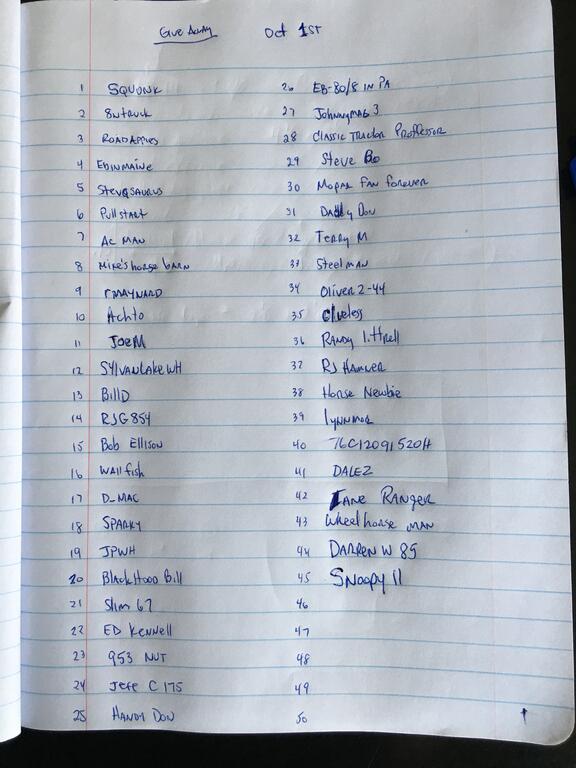 Give Away Oct 1st
1 SQUONK
2 8NTRUCK
3 ROADAPPLES
4 EDINMAINE
5 STEVASAURUS
6 Pullstart
7 AC MAN
8 Mike's horse barn
9 rMAYNARD
10 Achto
11 JoeM
12 SYLVANLAKEWH
13 BillD
14 RJG854
15 Bob Ellison
16 Wallfish
17 D_MAC
18 SPARKY
19 JPWH
20 BlackHood Bill
21 Slim 67
22 ED Kennell
23 953 NUT
24 Jeff C 175
25 HANDY DON
26 EB-80/8 IN PA
27 JohnnymaG 3
28 Classic Tractor Proffessor
29 Steve Bo
30 Mopar Fan forever
31 Daddy Don
32 Terry M
33 Steelman
34 Oliver 2-44
35 Clueless
36 Randy Littrell
37 RJ Hamner
38 Horse Newbie
39 lynnmor
40 76C12091520H
41 DALEZ
42 Lane RANGER
43 Wheelhorse MAN
44 DARREN W 85
45 Snoopy 11
46
47
48
49
50